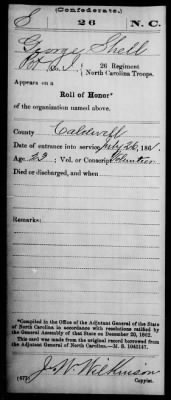 (Confederate.)
S 26 N. C.
George Shell
Pvt. Co. I, 26 Regiment
North Carolina Troops.
Appears on a
Roll of Honor*
of the organization named above.
County Caldwell
Date of entrance into service July 26, 1861.
Age 23; Vol. or Conscript Volunteer
Died or discharged, and when
Remarks:
*Compiled in the Office of the Adjutant General of the State
of North Carolina in accordance with resolutions ratified by
the General Assembly of that State on December 20, 1862.
This card was made from the original record borrowed from
the Adjutant General of North Carolina—M. S. 1042147.
J. W. Wilkinson
(677) Copyist.